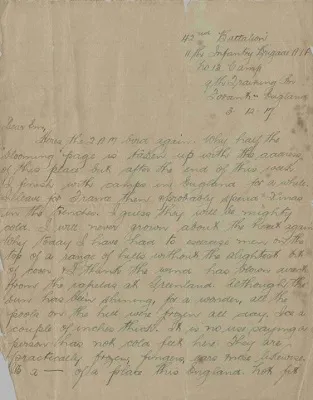 42nd Battalion
11th Infantry Brigade A.I.F
No 12 Camp
9th Training Bn
Fovant - England
3-12-17
Dear Em,
Here I am here again. Why half the
blooming page is taken up with the address
of this place but after the end of this week
I finish with camps in England for a while.
Leave for France then & probably spend Xmas
in the trenches. I guess they will be mighty
cold. I will never growl about the heat again
Why today I have had to exercise men on the
top of a range of hills without the slightest bit
of cover & I think the wind has blown direct
from the at Greenland. Although the
sun has been shining, for a wonder, all the
pools on the hill were frozen all day, for a
couple of inches thick. It is no use saying a
person has not cold feet here. They are
practically frozen, fingers, ears nose likewise.
It's a — of a place this England not fit